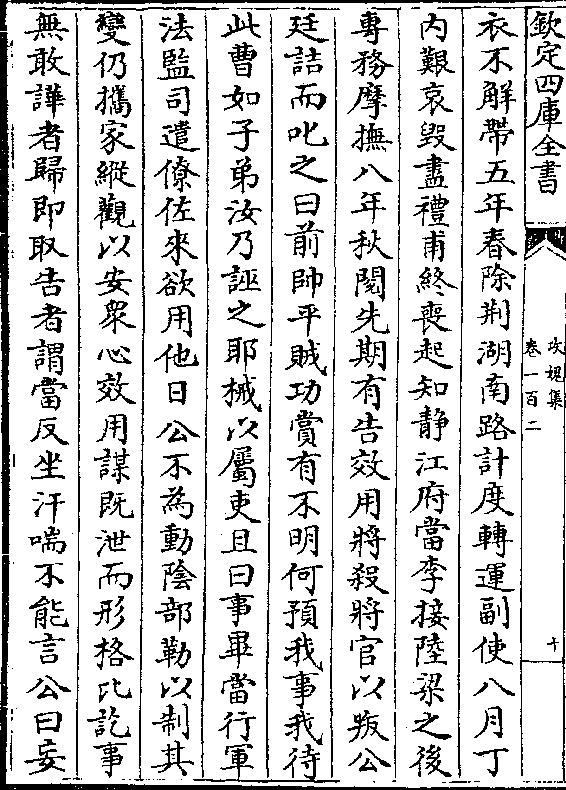 欽定四庫全書
攻媿集
卷一百二
十
衣不解帶五年春除荆湖南路計度轉運副使八月丁
内艱哀毀盡禮甫終喪起知静江府當李接陸梁之後
專務摩撫八年秋閲先期有告效用將殺將官以叛公
廷詰而叱之曰前帥平賊功賞有不明何預我事我待
此曹如子弟汝乃誣之耶械以屬吏且曰事畢當行軍
法監司遣僚佐來欲用他日公不為動陰部勒以制其
變仍攜家縱觀以安衆心效用謀既泄而形格比訖事
無敢譁者歸即取告者謂當反坐汗喘不能言公曰妄